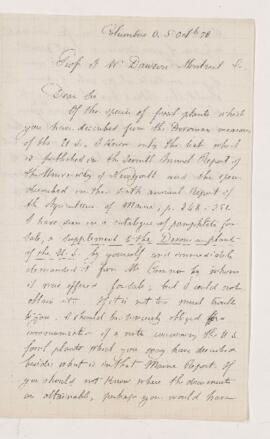 Columbus O. 5 Octbr 78
Prof J. W. Dawson Montreal
Dear Sir
Of the species of fossil plants which
you have described from the Devonian measures
of the U.S. I know only the
is published in the Seventh Annual Report of
the University of and the species
described in the sixth annual Report of
the Agriculture of Maine, p. 248-252.
I have seen in a catalogue of pamphlets for
sale, a supplement to the Devon. plants
of the U.S. by yourself and immediately
demanded it from Mr by whom
it was offered for sale; but I could not
obtain it. If it is not too much trouble
to you I should be sincerely obliged for
a note concerning the U.S.
fossil plants which you may have described
besides what is in that Maine Report. If
you should not know where the documents
are obtainable, perhaps you would have